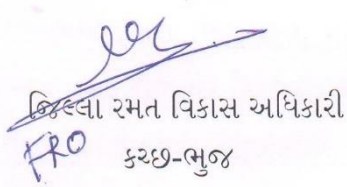 જિલ્લા રમત વિકાસ અધિકારી
FRO
કચ્છ-ભુજ